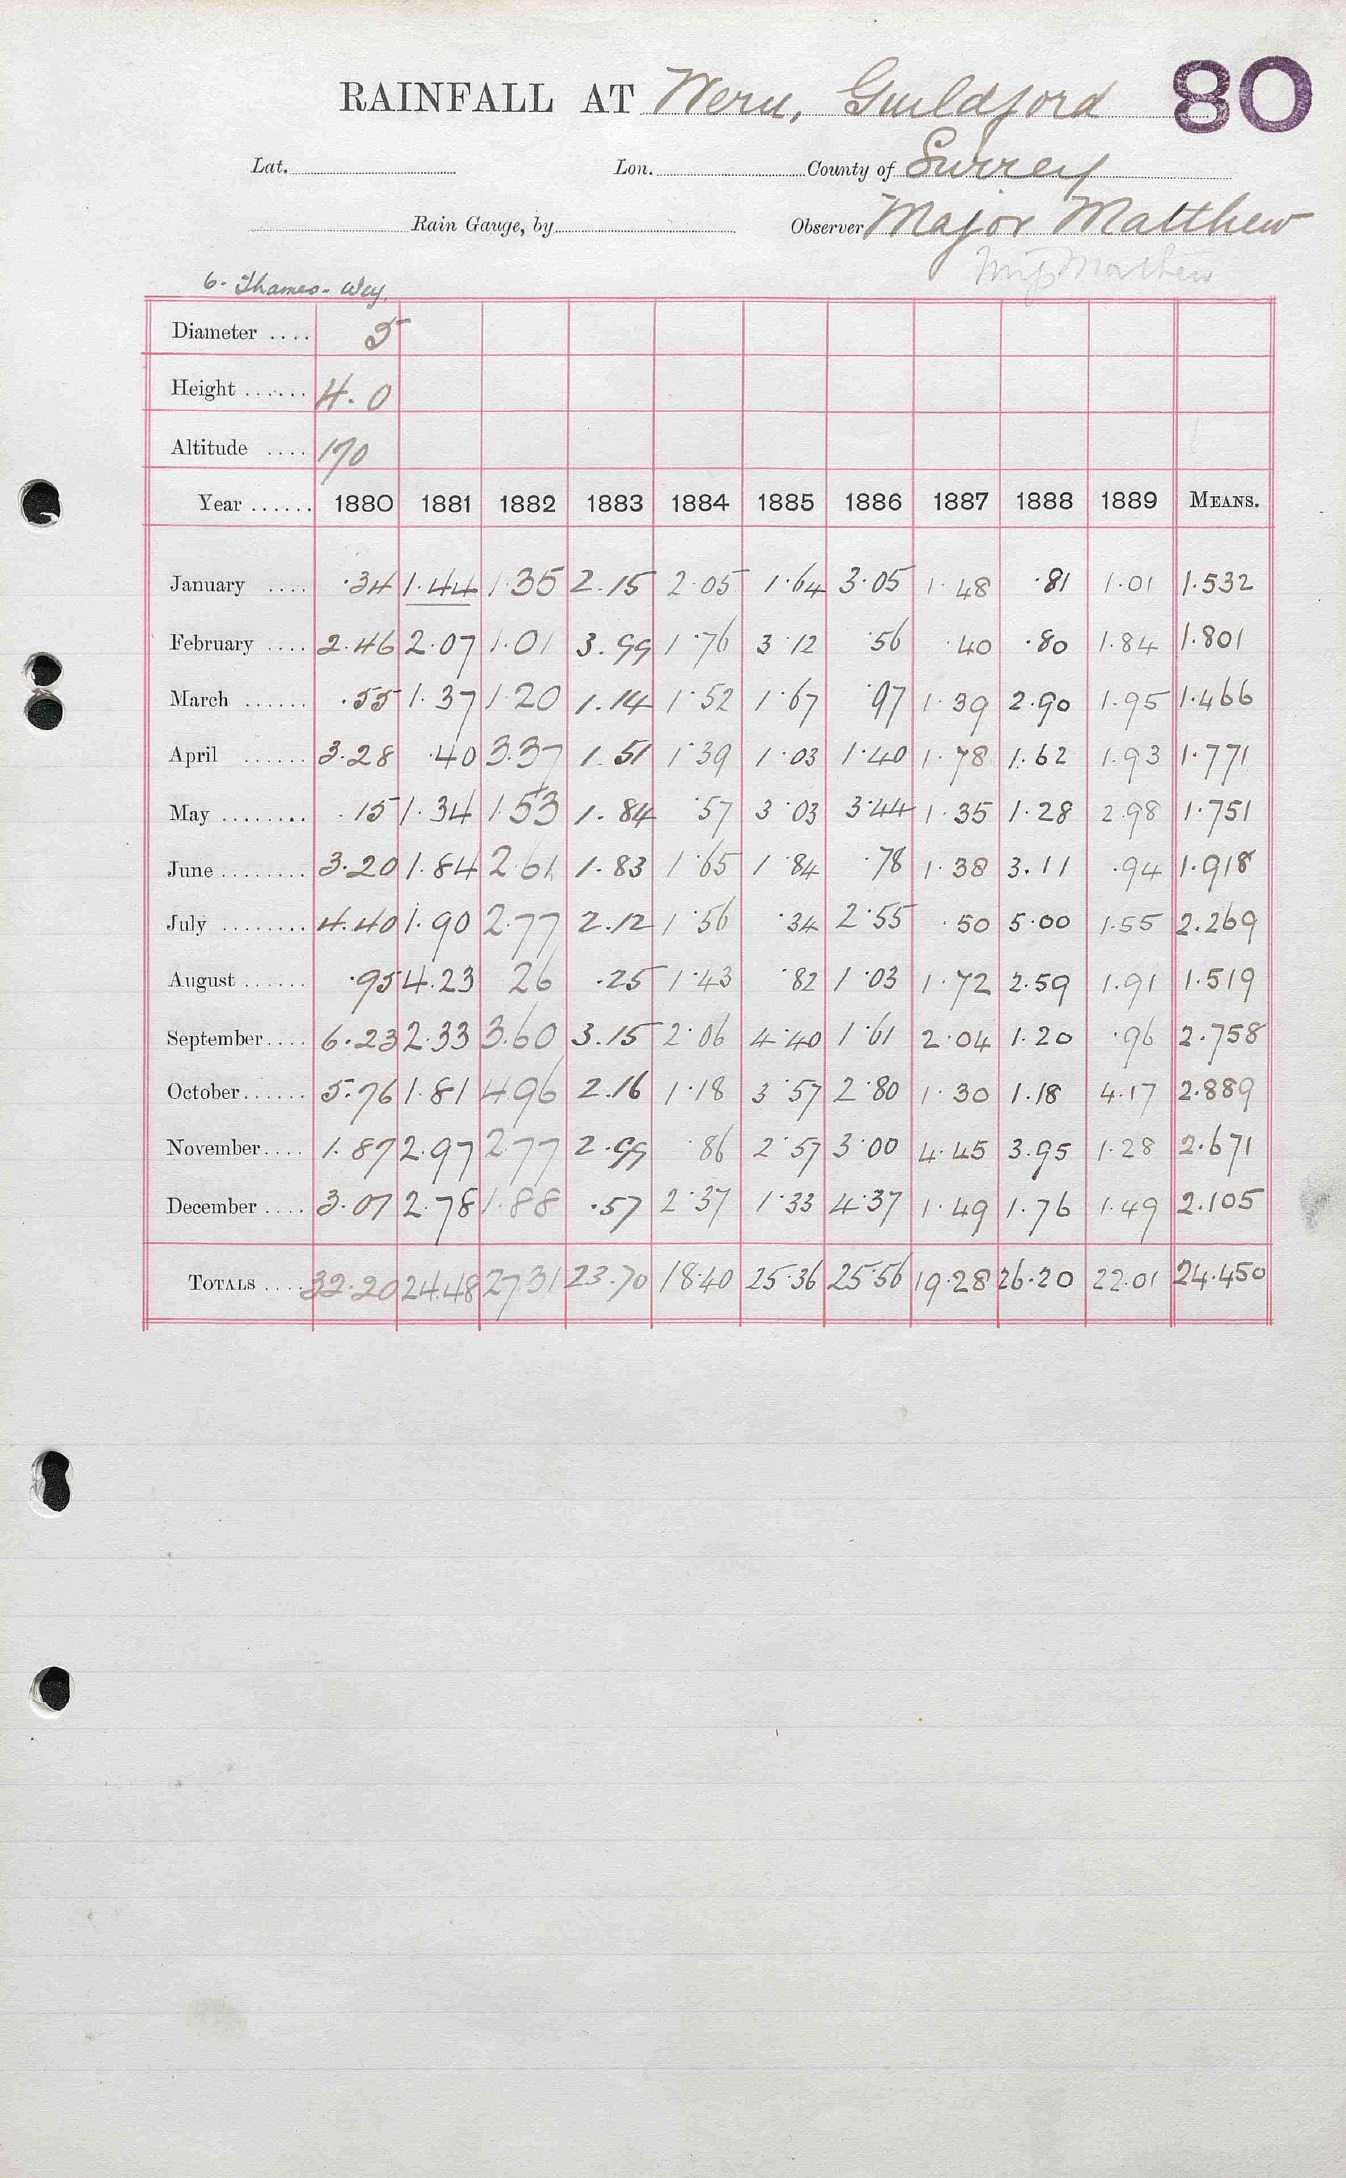 80
RAINFALL AT Wern, Guildford
Lat. Lon. County of Surrey
Rain Gauge, by Observer Major Matthew
Miss Mathew
6. Thames - Wey.
Diameter .... 5
Height ...... 4.0
Altitude .... 170
Year ...... 1880 1881 1882 1883 1884 1885 1886 1887 1888 1889 MEANS.
January .... .34 1.44 1.35 2.15 2.05 1.64 3.05 1.48 .81 1.01 1.532
February .... 2.46 2.07 1.01 3.99 1.76 3.12 .56 .40 .80 1.84 1.801
March ...... .55 1.37 1.20 1.14 1.52 1.67 .97 1.39 2.90 1.95 1.466
April ...... 3.28 .40 3.37 1.51 1.39 1.03 1.40 1.78 1.62 1.93 1.771
May ........ .15 1.34 1.53 1.84 .57 3.03 3.44 1.35 1.28 2.98 1.751
June ........ 3.20 1.84 2.61 1.83 1.65 1.84 .78 1.38 3.11 .94 1.918
July ........ 4.40 1.90 2.77 2.12 1.56 .34 2.55 .50 5.00 1.55 2.269
August ...... .95 4.23 26 .25 1.43 .82 1.03 1.72 2.59 1.91 1.519
September .... 6.23 2.33 3.60 3.15 2.06 4.40 1.61 2.04 1.20 .96 2.758
October ...... 5.76 1.81 4.96 2.16 1.18 3.57 2.80 1.30 1.18 4.17 2.889
November .... 1.87 2.97 2.77 2.99 .86 2.57 3.00 4.45 3.95 1.28 2.671
December .... 3.01 2.78 1.88 .57 2.37 1.33 4.37 1.49 1.76 1.49 2.105
TOTALS .... 32.20 24.48 27.31 23.70 18.40 25.36 25.56 19.28 26.20 22.01 24.450